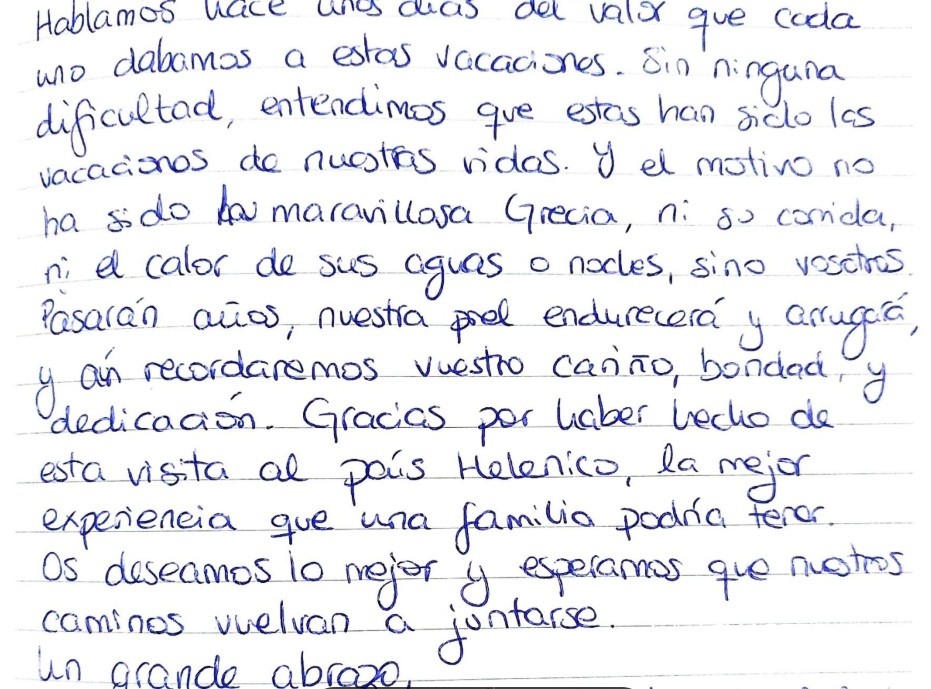 Hablamos hace unos días del valor que cada
uno dabamos a estas vacaciones. Sin ninguna
dificultad, entendimos que estas han sido las
vacaciones de nuestras vidas. Y el motivo no
ha sido la maravillosa Grecia, ni su comida,
ni el calor de sus aguas o noches, sino vosotros.
Pasarán años, nuestra piel endurecerá y arrugará,
y aún recordaremos vuestro cariño, bondad, y
dedicación. Gracias por haber hecho de
esta visita al país Helenico, la mejor
experiencia que una familia podría tener.
Os deseamos lo mejor y esperamos que nuestros
caminos vuelvan a juntarse.
Un grande abrazo,